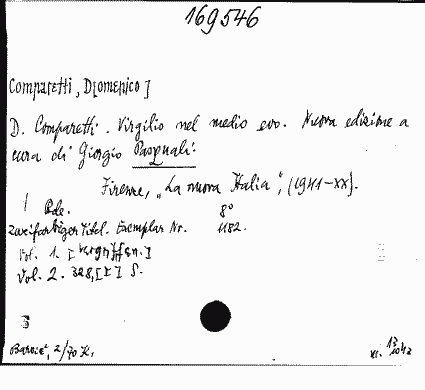 169546
Comparetti, D[omenico]
D. Comparetti. Virgilio nel medio evo. Nuova edizione a
cura di Giorgio Pasquali.
Firenze, „La nuova Italia“, (1941-XX).
Bde. 8°
Zweifarbiger Titel. Exemplar Nr. 1182.
Vol. 1. [Vergr]
Vol. 2. 328, [1] S.
2/70 K.
XI. 13